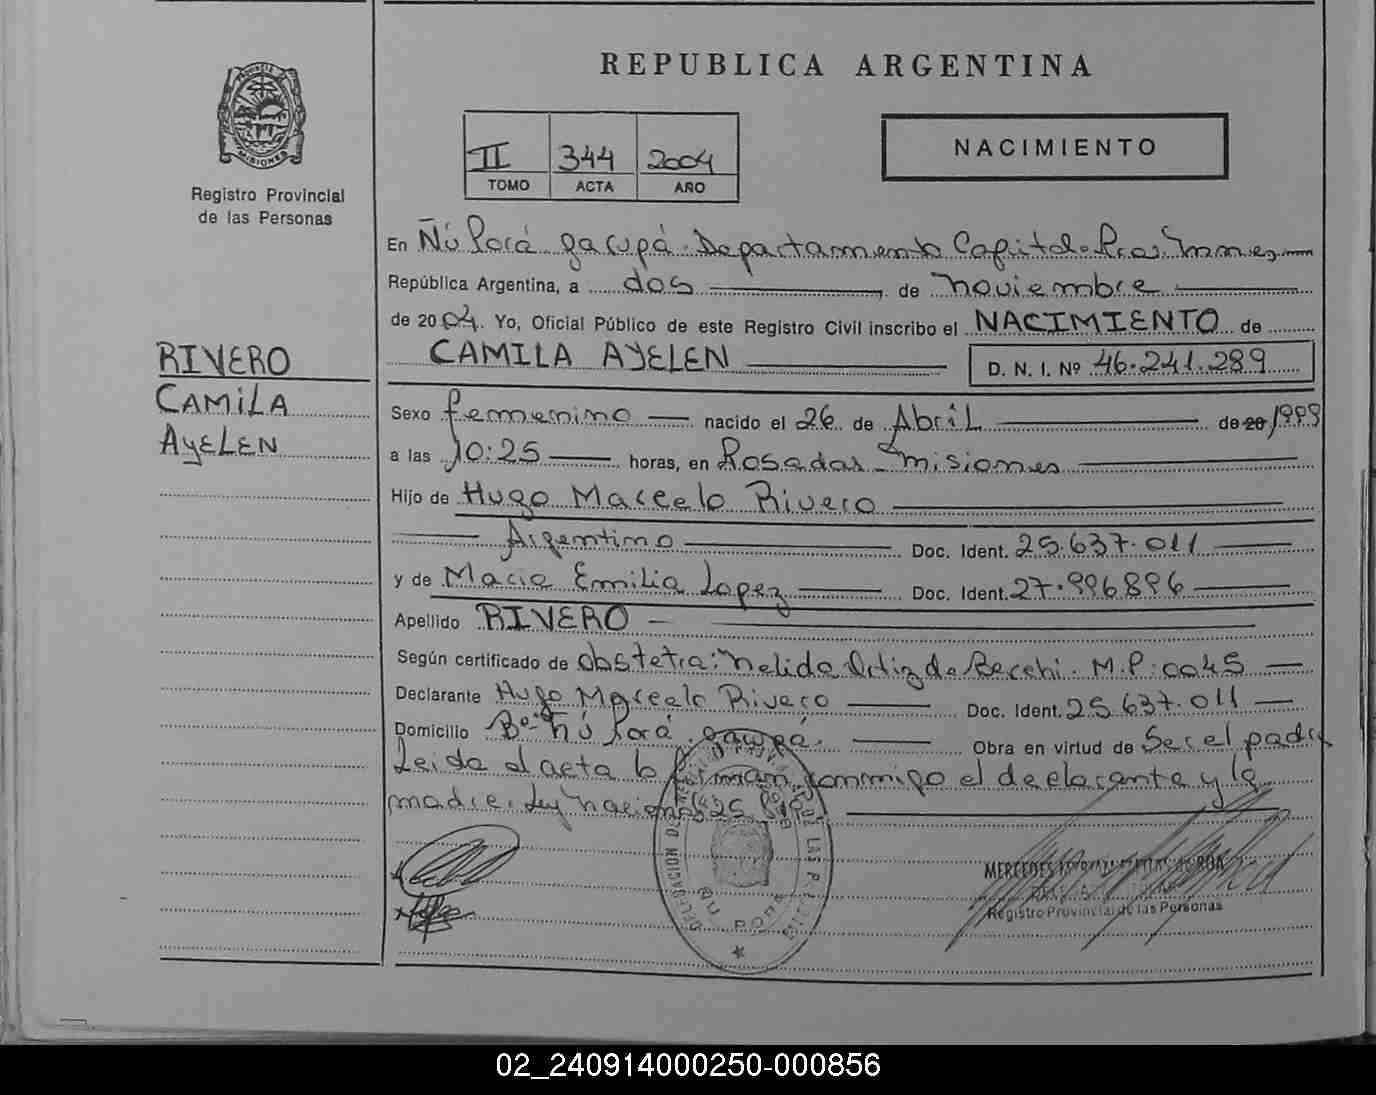 REPUBLICA ARGENTINA
PROVINCIA DE
MISIONES
Registro Provincial
de las Personas
II 344 2004
TOMO ACTA AÑO
NACIMIENTO
En Ñú Porá Garupá. Departamento Capital. Prov. Misiones
República Argentina, a dos de noviembre
de 2004. Yo, Oficial Público de este Registro Civil inscribo el NACIMIENTO de
CAMILA AYELEN D. N. I. Nº 46.241.289
RIVERO
CAMILA
AYELEN
Sexo femenino nacido el 26 de Abril de 20 1999
a las 10:25 horas, en Posadas - misiones
Hijo de Hugo Marcelo Rivero
Argentino Doc. Ident. 25.637.011
y de Maria Emilia Lopez Doc. Ident. 27.996896
Apellido RIVERO
Según certificado de obstetra: Nelida Ortiz de Becchi. M.P: 0045
Declarante Hugo Marcelo Rivero Doc. Ident. 25.637.011
Domicilio Bº Ñú Porá. Garupá. Obra en virtud de Ser el padre
Leida el acta la firman conmigo el declarante y la
madre. Ley nacional 25.
DELEGACION DE LAS
ÑU PORA
MERCEDES DE ROA
Registro Provincial de las Personas
02_240914000250-000856